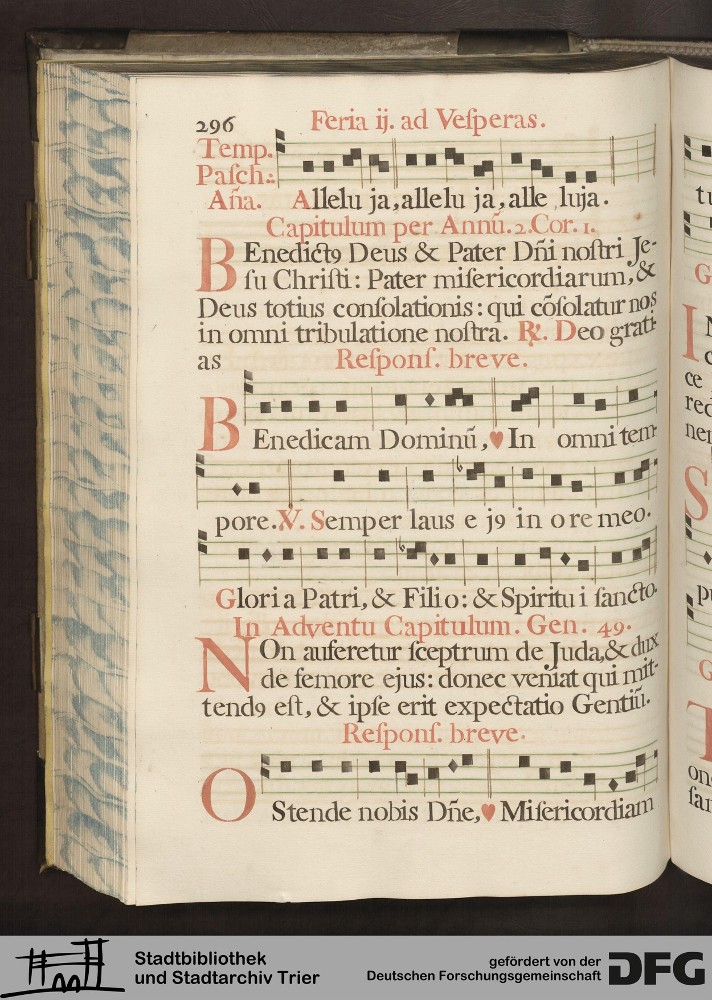 296 Feria ij. ad Veſperas.
Temp.
Paſch.:
Aña. Allelu ja, allelu ja, alle luja.
Capitulum per Annũ. 2. Cor. 1.
BEnedictꝰ Deus & Pater Dñi noſtri Je-
ſu Chriſti: Pater miſericordiarum, &
Deus totius conſolationis: qui cõſolatur nos
in omni tribulatione noſtra. ℟. Deo grati-
as Reſponſ. breve.
BEnedicam Dominũ, ♥ In omni tem-
pore. ℣. Semper laus e jꝰ in ore meo.
Gloria Patri, & Filio: & Spiritui ſancto.
In Adventu Capitulum. Gen. 49.
NOn auferetur ſceptrum de Juda, & dux
de femore ejus: donec veniat qui mit-
tendꝰ eſt, & ipſe erit expectatio Gentiũ.
Reſponſ. breve.
OStende nobis Dñe, ♥ Miſericordiam
Stadtbibliothek
und Stadtarchiv Trier
gefördert von der
Deutschen Forschungsgemeinschaft
DFG